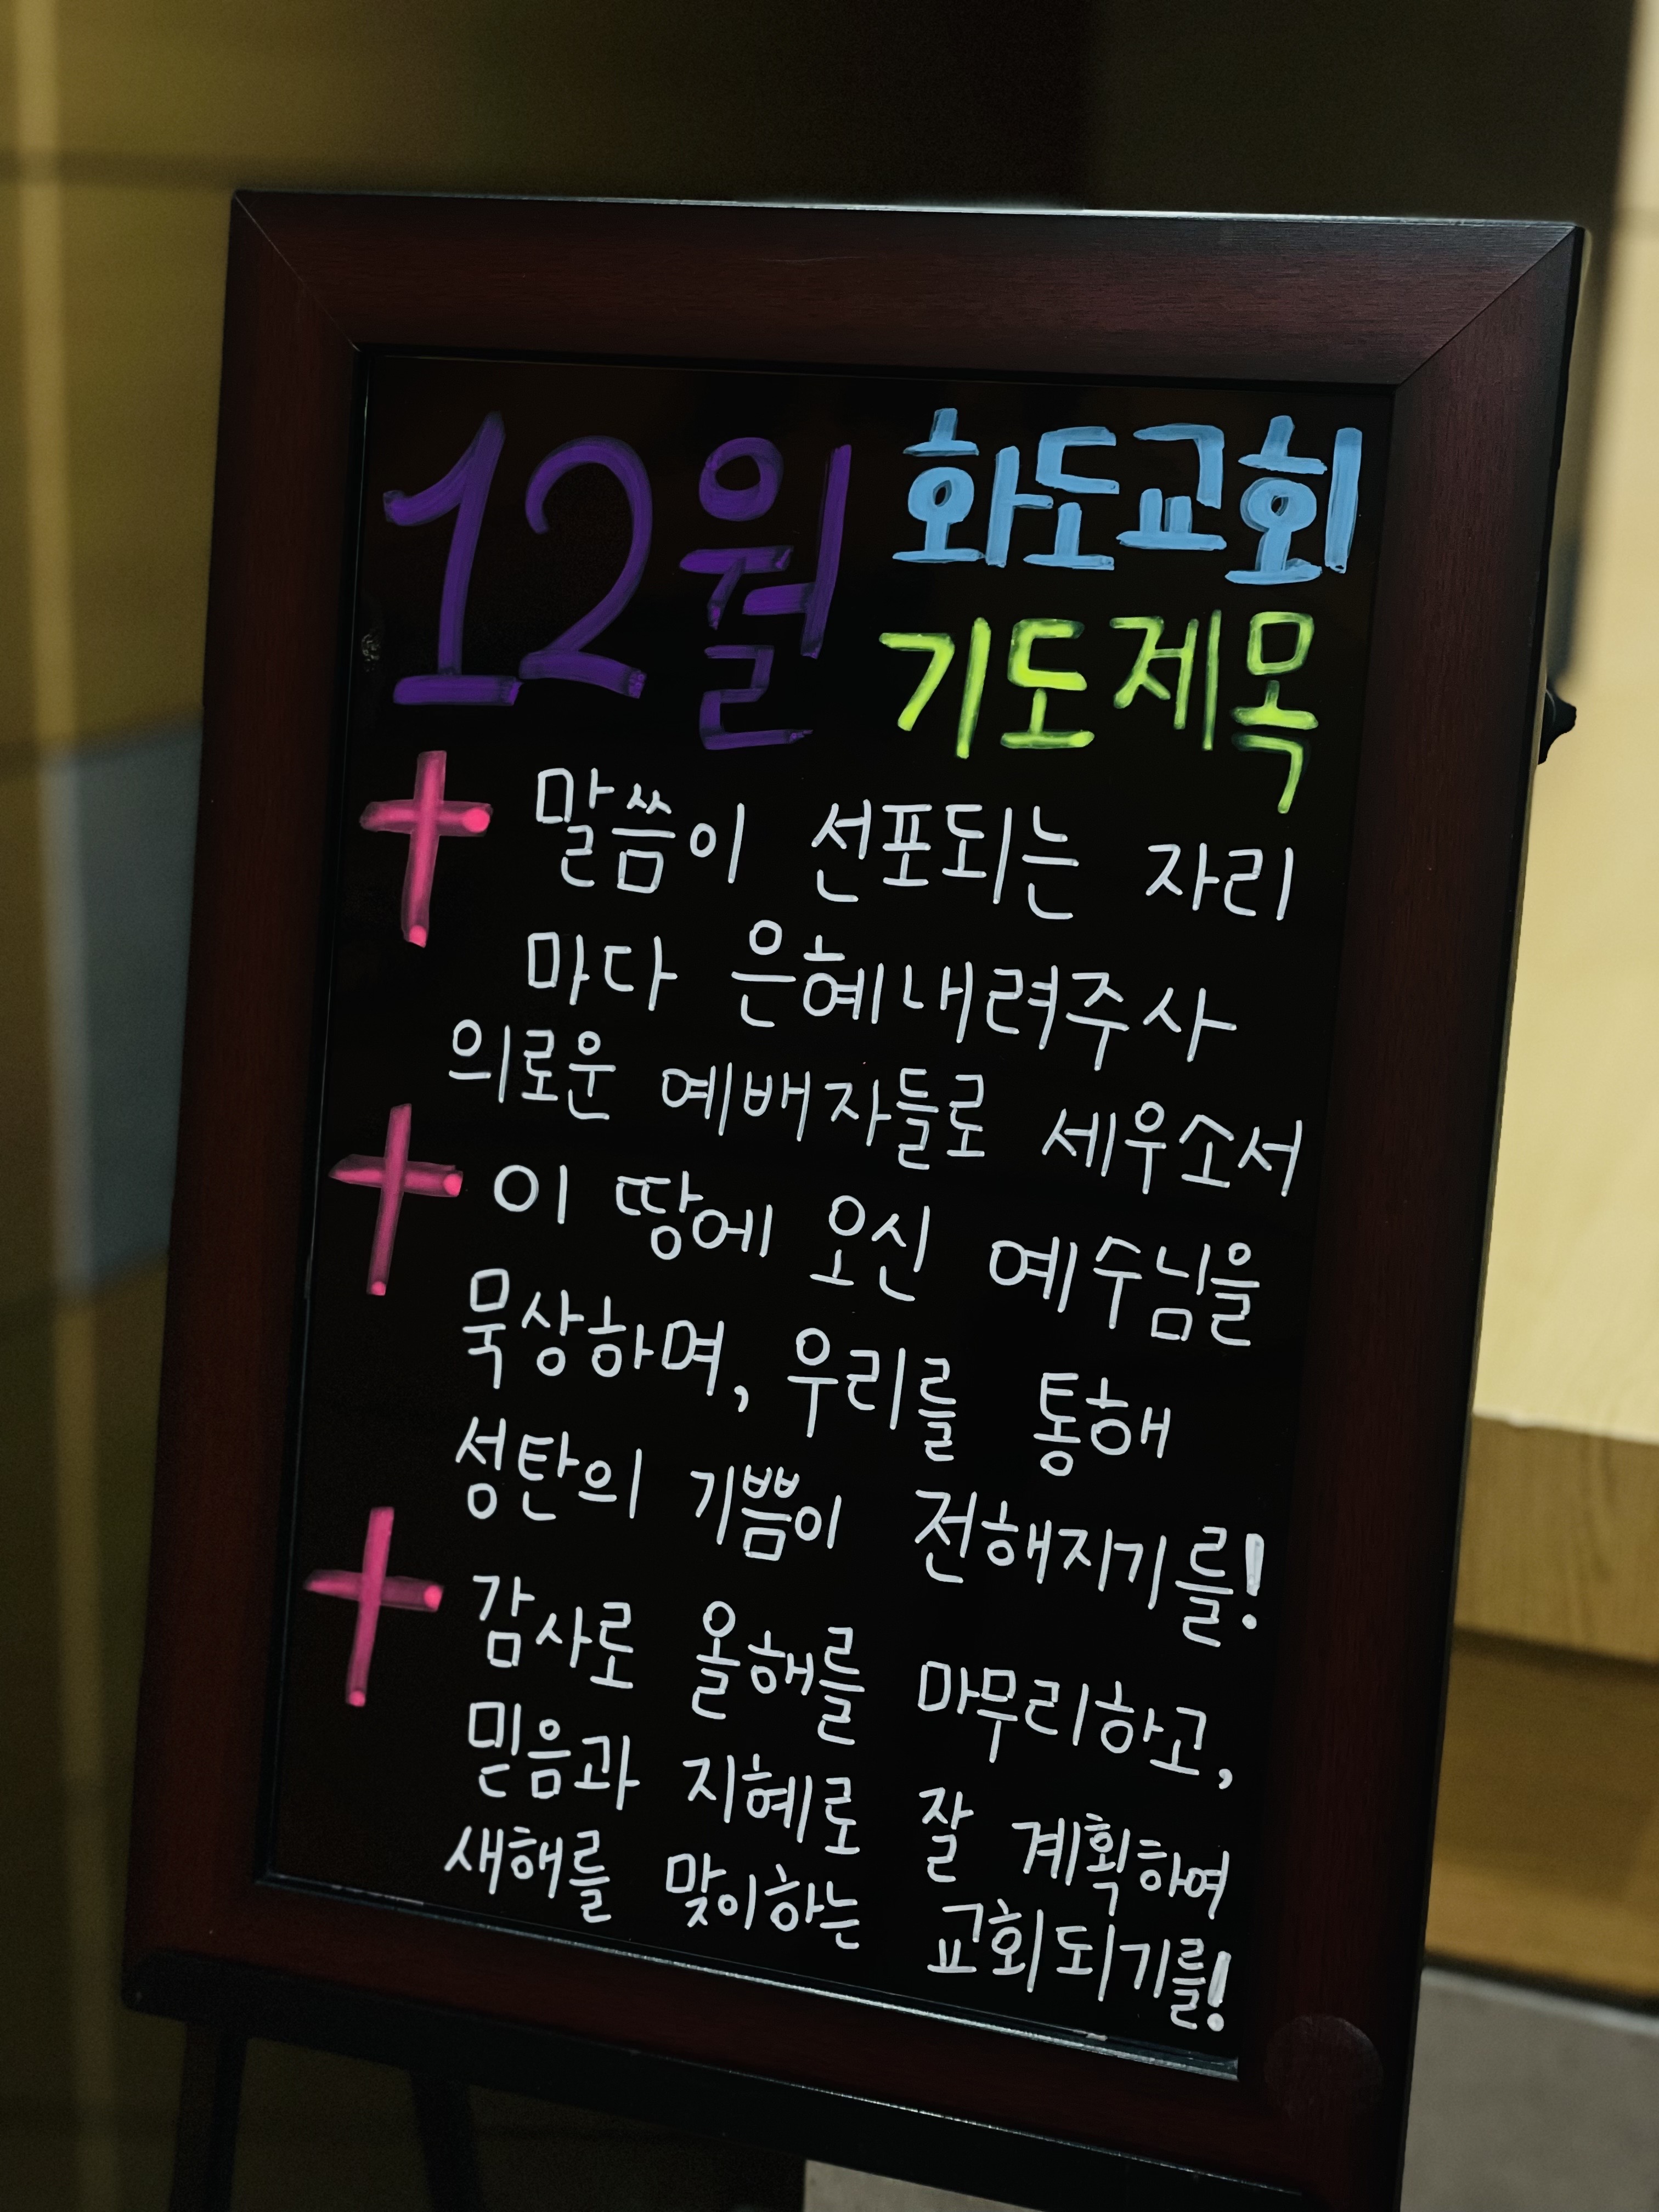 12월 화도교회
기도제목
말씀이 선포되는 자리
마다 은혜내려주사
의로운 예배자들로 세우소서
이 땅에 오신 예수님을
묵상하며, 우리를 통해
성탄의 기쁨이 전해지기를!
감사로 올해를 마무리하고,
믿음과 지혜로 잘 계획하여
새해를 맞이하는 교회되기를!